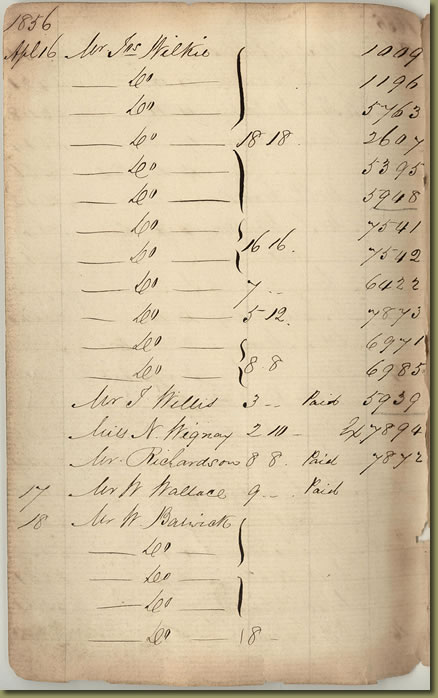 1856
Apl 16 Mr Jns Wilkie 1009
Do 1196
Do 5763
Do 18 18 2607
Do 5395
Do 5948
Do 7541
Do 16 16. 7542
Do 7 - - 6422
Do 5 12. 7873
Do 6971
Do 8. 8 6985
Mr J Willis 3 - - Paid 5939
Miss N. Wignay 2 10 - Ex 7894
Mr. Richardson 8 8. Paid 7872
17 Mr W Wallace 9 - - Paid
18 Mr W Barwick
Do
Do
Do
Do 18 -